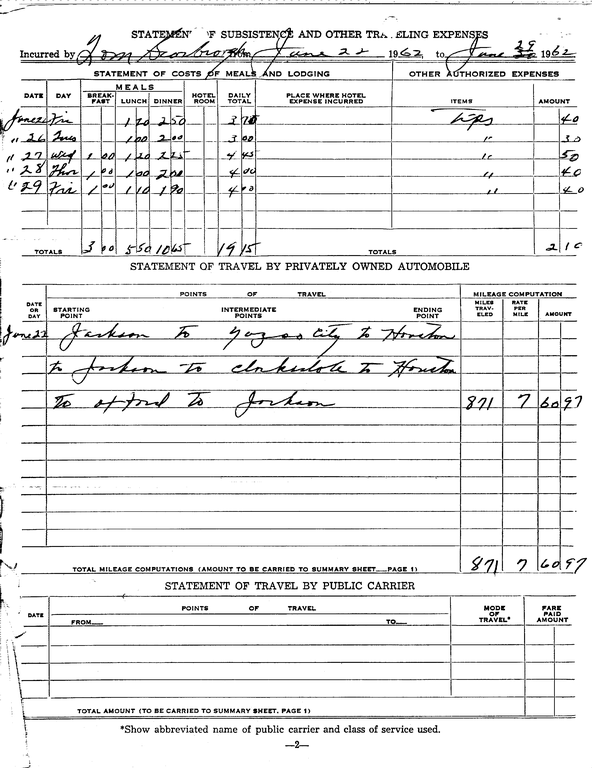 STATEMENT OF SUBSISTENCE AND OTHER TRAVELING EXPENSES
Incurred by Tom from June 22 1962, to June 29 1962
STATEMENT OF COSTS OF MEALS AND LODGING OTHER AUTHORIZED EXPENSES
MEALS
DATE DAY BREAK-FAST LUNCH DINNER HOTEL ROOM DAILY TOTAL PLACE WHERE HOTEL EXPENSE INCURRED ITEMS AMOUNT
June 22 Fri 1 20 2 50 3 70 tips 40
" 26 Tues 1 00 2 00 3 00 " 30
" 27 Wed 1 00 1 20 2 25 4 45 " 50
" 28 Thur 1 00 1 00 2 00 4 00 " 40
" 29 Fri 1 00 1 10 1 90 4 00 " 40
TOTALS 3 00 5 50 10 65 19 15 TOTALS 2 10
STATEMENT OF TRAVEL BY PRIVATELY OWNED AUTOMOBILE
POINTS OF TRAVEL MILEAGE COMPUTATION
DATE OR DAY STARTING POINT INTERMEDIATE POINTS ENDING POINT MILES TRAV-ELED RATE PER MILE AMOUNT
June 22 Jackson to Yazoo City to Houston
to Jackson to Clarksdale to Houston
to Oxford to Jackson 871 7 60 97
TOTAL MILEAGE COMPUTATIONS (AMOUNT TO BE CARRIED TO SUMMARY SHEET__PAGE 1) 871 7 60 97
STATEMENT OF TRAVEL BY PUBLIC CARRIER
DATE POINTS OF TRAVEL MODE OF TRAVEL* FARE PAID AMOUNT
FROM__ TO__
TOTAL AMOUNT (TO BE CARRIED TO SUMMARY SHEET. PAGE 1)
*Show abbreviated name of public carrier and class of service used.
—2—